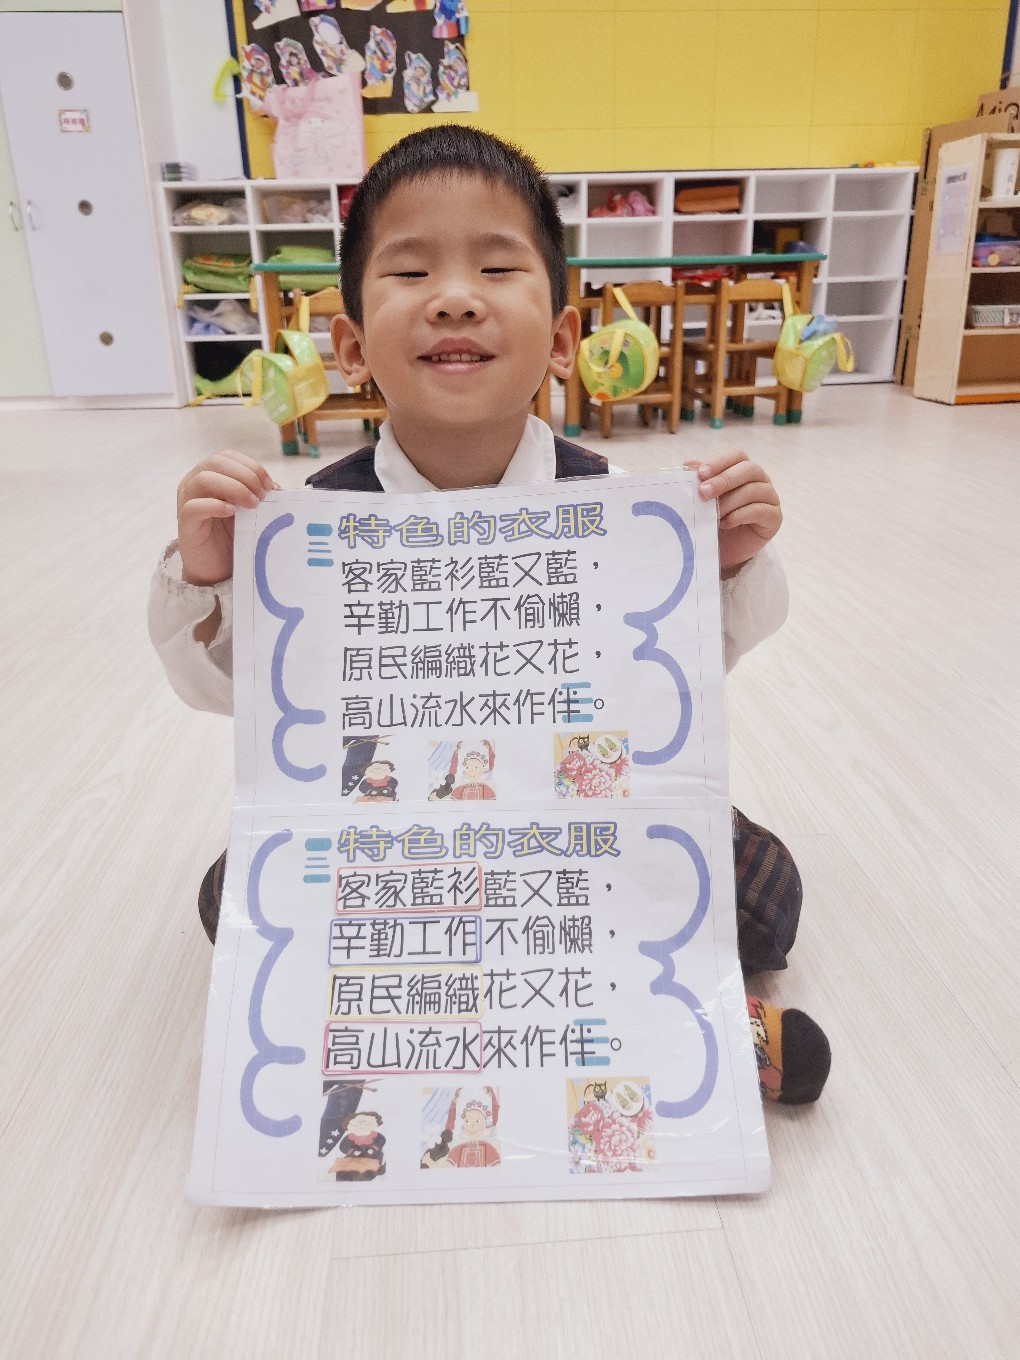 特色的衣服
客家藍衫藍又藍，
辛勤工作不偷懶，
原民編織花又花，
高山流水來作伴。
特色的衣服
客家藍衫藍又藍，
辛勤工作不偷懶，
原民編織花又花，
高山流水來作伴。